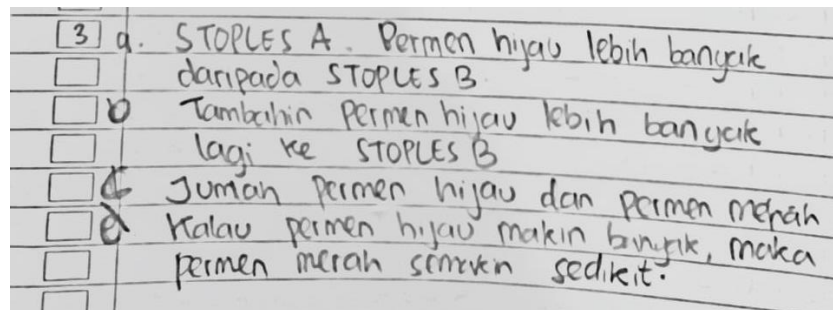 3 a. STOPLES A. Permen hijau lebih banyak
daripada STOPLES B
b Tambahin permen hijau lebih banyak
lagi ke STOPLES B
c Jumah permen hijau dan permen merah
d Kalau permen hijau makin banyak, maka
permen merah semakin sedikit.